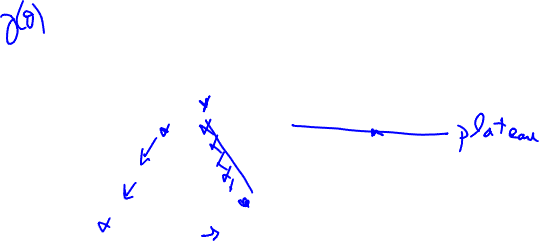 J(θ)
plateau